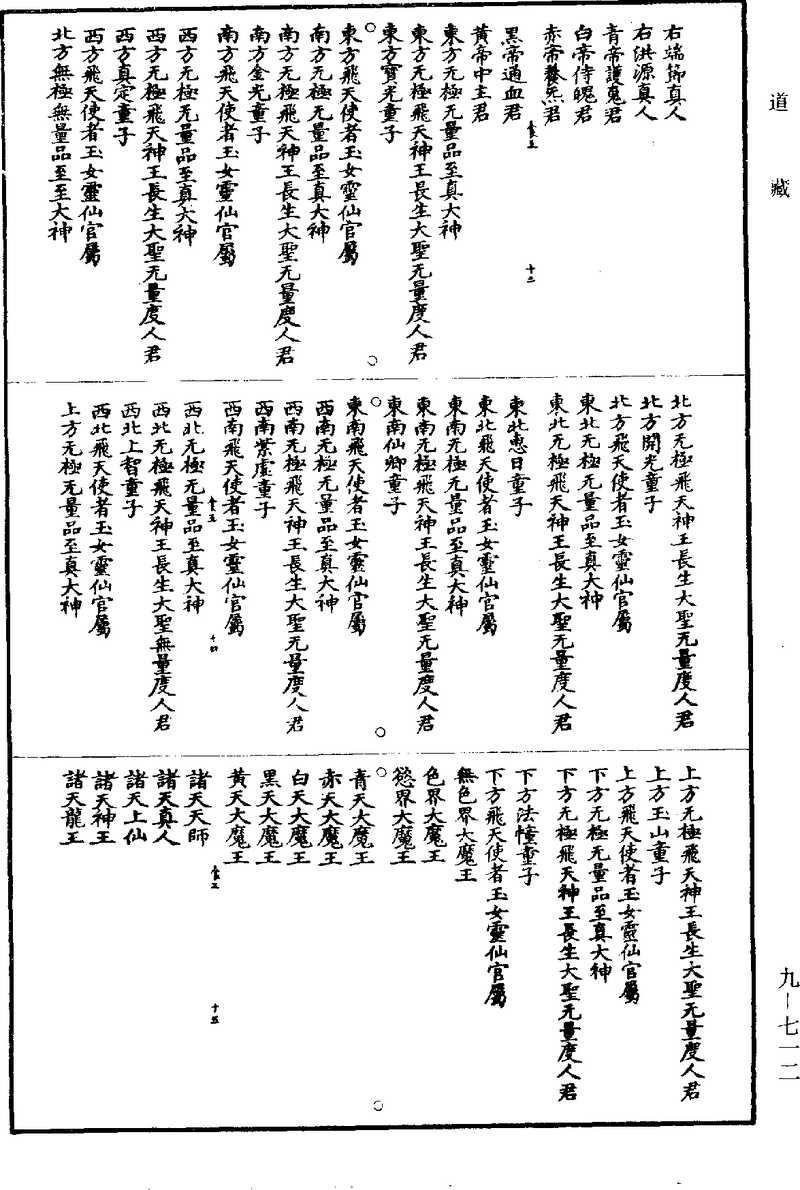 道藏
右端節真人
右洪源真人
青帝護魂君
白帝侍魄君
赤帝養炁君
黑帝通血君
黃帝中主君
東方无極无量品至真大神
東方无極飛天神王長生大聖无量度人君
東方寶光童子
東方飛天使者玉女靈仙官屬
南方无極无量品至真大神
南方无極飛天神王長生大聖无量度人君
南方金光童子
南方飛天使者玉女靈仙官屬
西方无極无量品至真大神
西方无極飛天神王長生大聖无量度人君
西方真定童子
西方飛天使者玉女靈仙官屬
北方無極無量品至至大神
北方无極飛天神王長生大聖无量度人君
北方開光童子
北方飛天使者玉女靈仙官屬
東北无極无量品至真大神
東北无極飛天神王長生大聖无量度人君
東北惠日童子
東北飛天使者玉女靈仙官屬
東南无極无量品至真大神
東南无極飛天神王長生大聖无量度人君
東南仙卿童子
東南飛天使者玉女靈仙官屬
西南无極无量品至真大神
西南无極飛天神王長生大聖无量度人君
西南紫虛童子
西南飛天使者玉女靈仙官屬
十四
西北无極无量品至真大神
西北无極飛天神王長生大聖無量度人君
西北上智童子
西北飛天使者玉女靈仙官屬
上方无極无量品至真大神
上方无極飛天神王長生大聖无量度人君
上方玉山童子
上方飛天使者玉女靈仙官屬
下方无極无量品至真大神
下方无極飛天神王長生大聖无量度人君
下方法幢童子
下方飛天使者玉女靈仙官屬
無色界大魔王
色界大魔王
慾界大魔王
青天大魔王
赤天大魔王
白天大魔王
黑天大魔王
黃天大魔王
十五
諸天天師
諸天真人
諸天上仙
諸天神王
諸天龍王
九－七一二